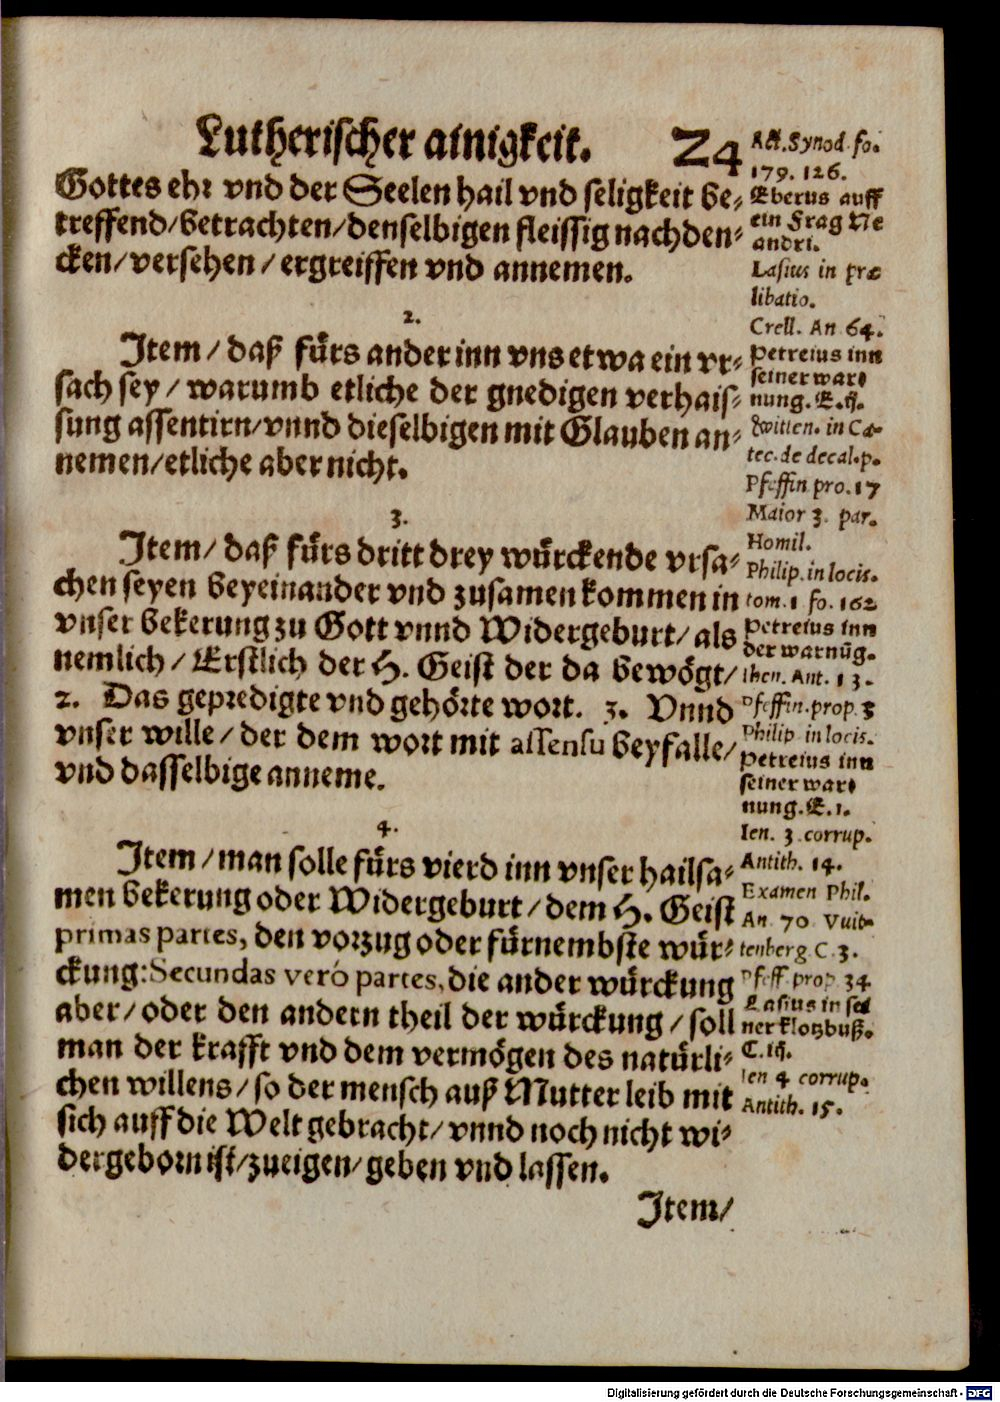 Lutherischer ainigkeit. 24
Gottes ehr vnd der Seelen hail vnd seligkeit be-
treffend/betrachten/denselbigen fleissig nachden-
cken/versehen/ergreiffen vnd annemen.
2.
Item/daß fürs ander inn vns etwa ein vr-
sach sey/warumb etliche der gnedigen verhais-
sung assentirn/vnnd dieselbigen mit Glauben an-
nemen/etliche aber nicht.
3.
Item/daß fürs dritt drey würckende vrsa-
chen seyen beyeinander vnd zusamen kommen in
vnser bekerung zu Gott vnnd Widergeburt/als
nemlich/Erstlich der H. Geist der da bewögt/
2. Das gepredigte vnd gehörte wort. 3. Vnnd
vnser wille/der dem wort mit assensu beyfalle/
vnd dasselbige anneme.
4.
Item/man solle fürs vierd inn vnser hailsa-
men bekerung oder Widergeburt/dem H. Geist
primas partes, den vorzug oder fürnembste wür-
ckung: Secundas verò partes, die ander würckung
aber/oder den andern theil der würckung/soll
man der krafft vnd dem vermögen des natürli-
chen willens/so der mensch auß Mutter leib mit
sich auff die Welt gebracht/vnnd noch nicht wi-
dergeborn ist/zueigen/geben vnd lassen.
Item/
Act. Synod. fo.
179. 126.
Eberus auff
ein Frag Ne
andri.
Lasius in præ
libatio.
Crell. An 64.
Petreius inn
seiner war-
nung. E.ij.
Witten. in Ca-
tec. de decal. p.
Pfeffin pro. 17
Maior 3. par.
Homil.
Philip. in locis.
tom. 1 fo. 162
Petreius inn
der warnūg.
Ihen. Ant. 13.
Pfeffin. prop. 3
Philip in locis.
Petreius inn
seiner war-
nung. E. 1.
Ien. 3 corrup.
Antith. 14.
Examen Phil.
An. 70 Vuit-
tenberg C. 3.
Pfeff. prop 34
Lasius in sei
ner klotzbuß.
C. iij.
Ien 4 corrup.
Antith. 15.
Digitalisierung gefördert durch die Deutsche Forschungsgemeinschaft - DFG